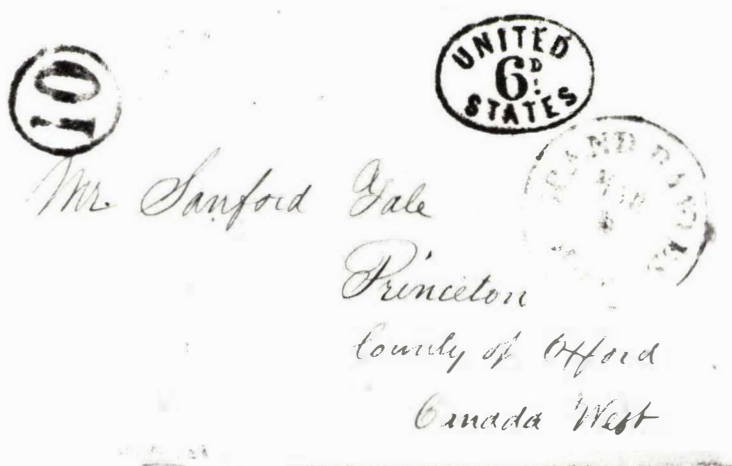 10
UNITED
6D
STATES
GRAND RAPIDS
Mr. Sanford Yale
Princeton
County of Oxford
Canada West